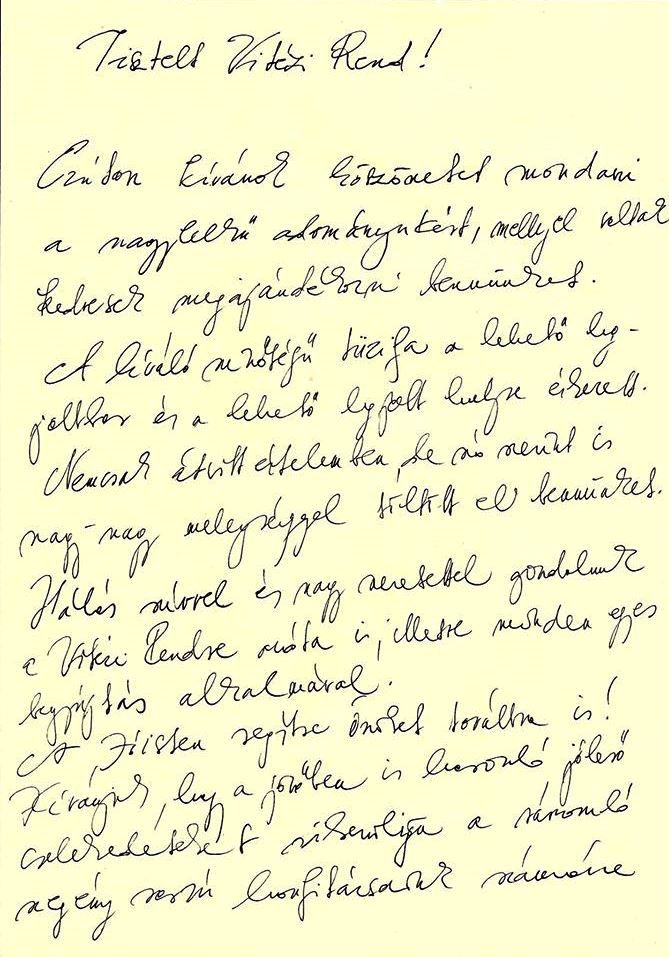 Tisztelt Vitézi Rend!
Ezúton kívánok köszönetet mondani
a nagylelkű adományukért, mellyel voltak
kedvesek megajándékozni bennünket.
A kiváló minőségű tüzifa a lehető leg-
jobbkor és a lehető legjobb helyre érkezett.
Nemcsak átvitt értelemben, de szó szerint is
nagy-nagy melegséggel töltött el bennünket.
Hálás szívvel és nagy szeretettel gondolunk
a Vitézi Rendre azóta is, illetve minden egyes
begyújtás alkalmával.
A Jóisten segítse Önöket továbbra is!
Kívánjuk, hogy a jövőben is hasonló jóleső
cselekedetekért szikrázzon a rászoruló
szegény sorsú honfitársaink számára